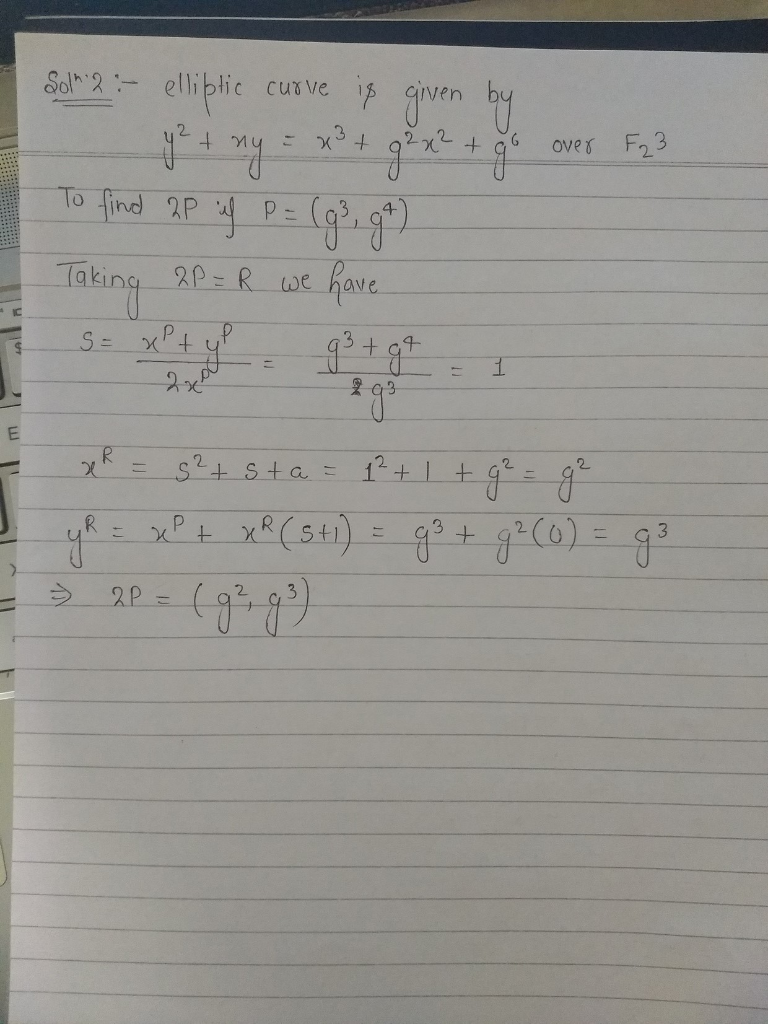 Solⁿ·2 :- elliptic curve is given by
y² + xy = x³ + g²x² + g⁶ over F₂3
To find 2P if P = (g³, g⁴)
Taking 2P = R we have
S = (xᴾ + yᴾ)/(2xᴾ) = (g³ + g⁴)/(2g³) = 1
xᴿ = S² + S + a = 1² + 1 + g² = g²
yᴿ = xᴾ + xᴿ(S+1) = g³ + g²(0) = g³
⇒ 2P = (g², g³)
E